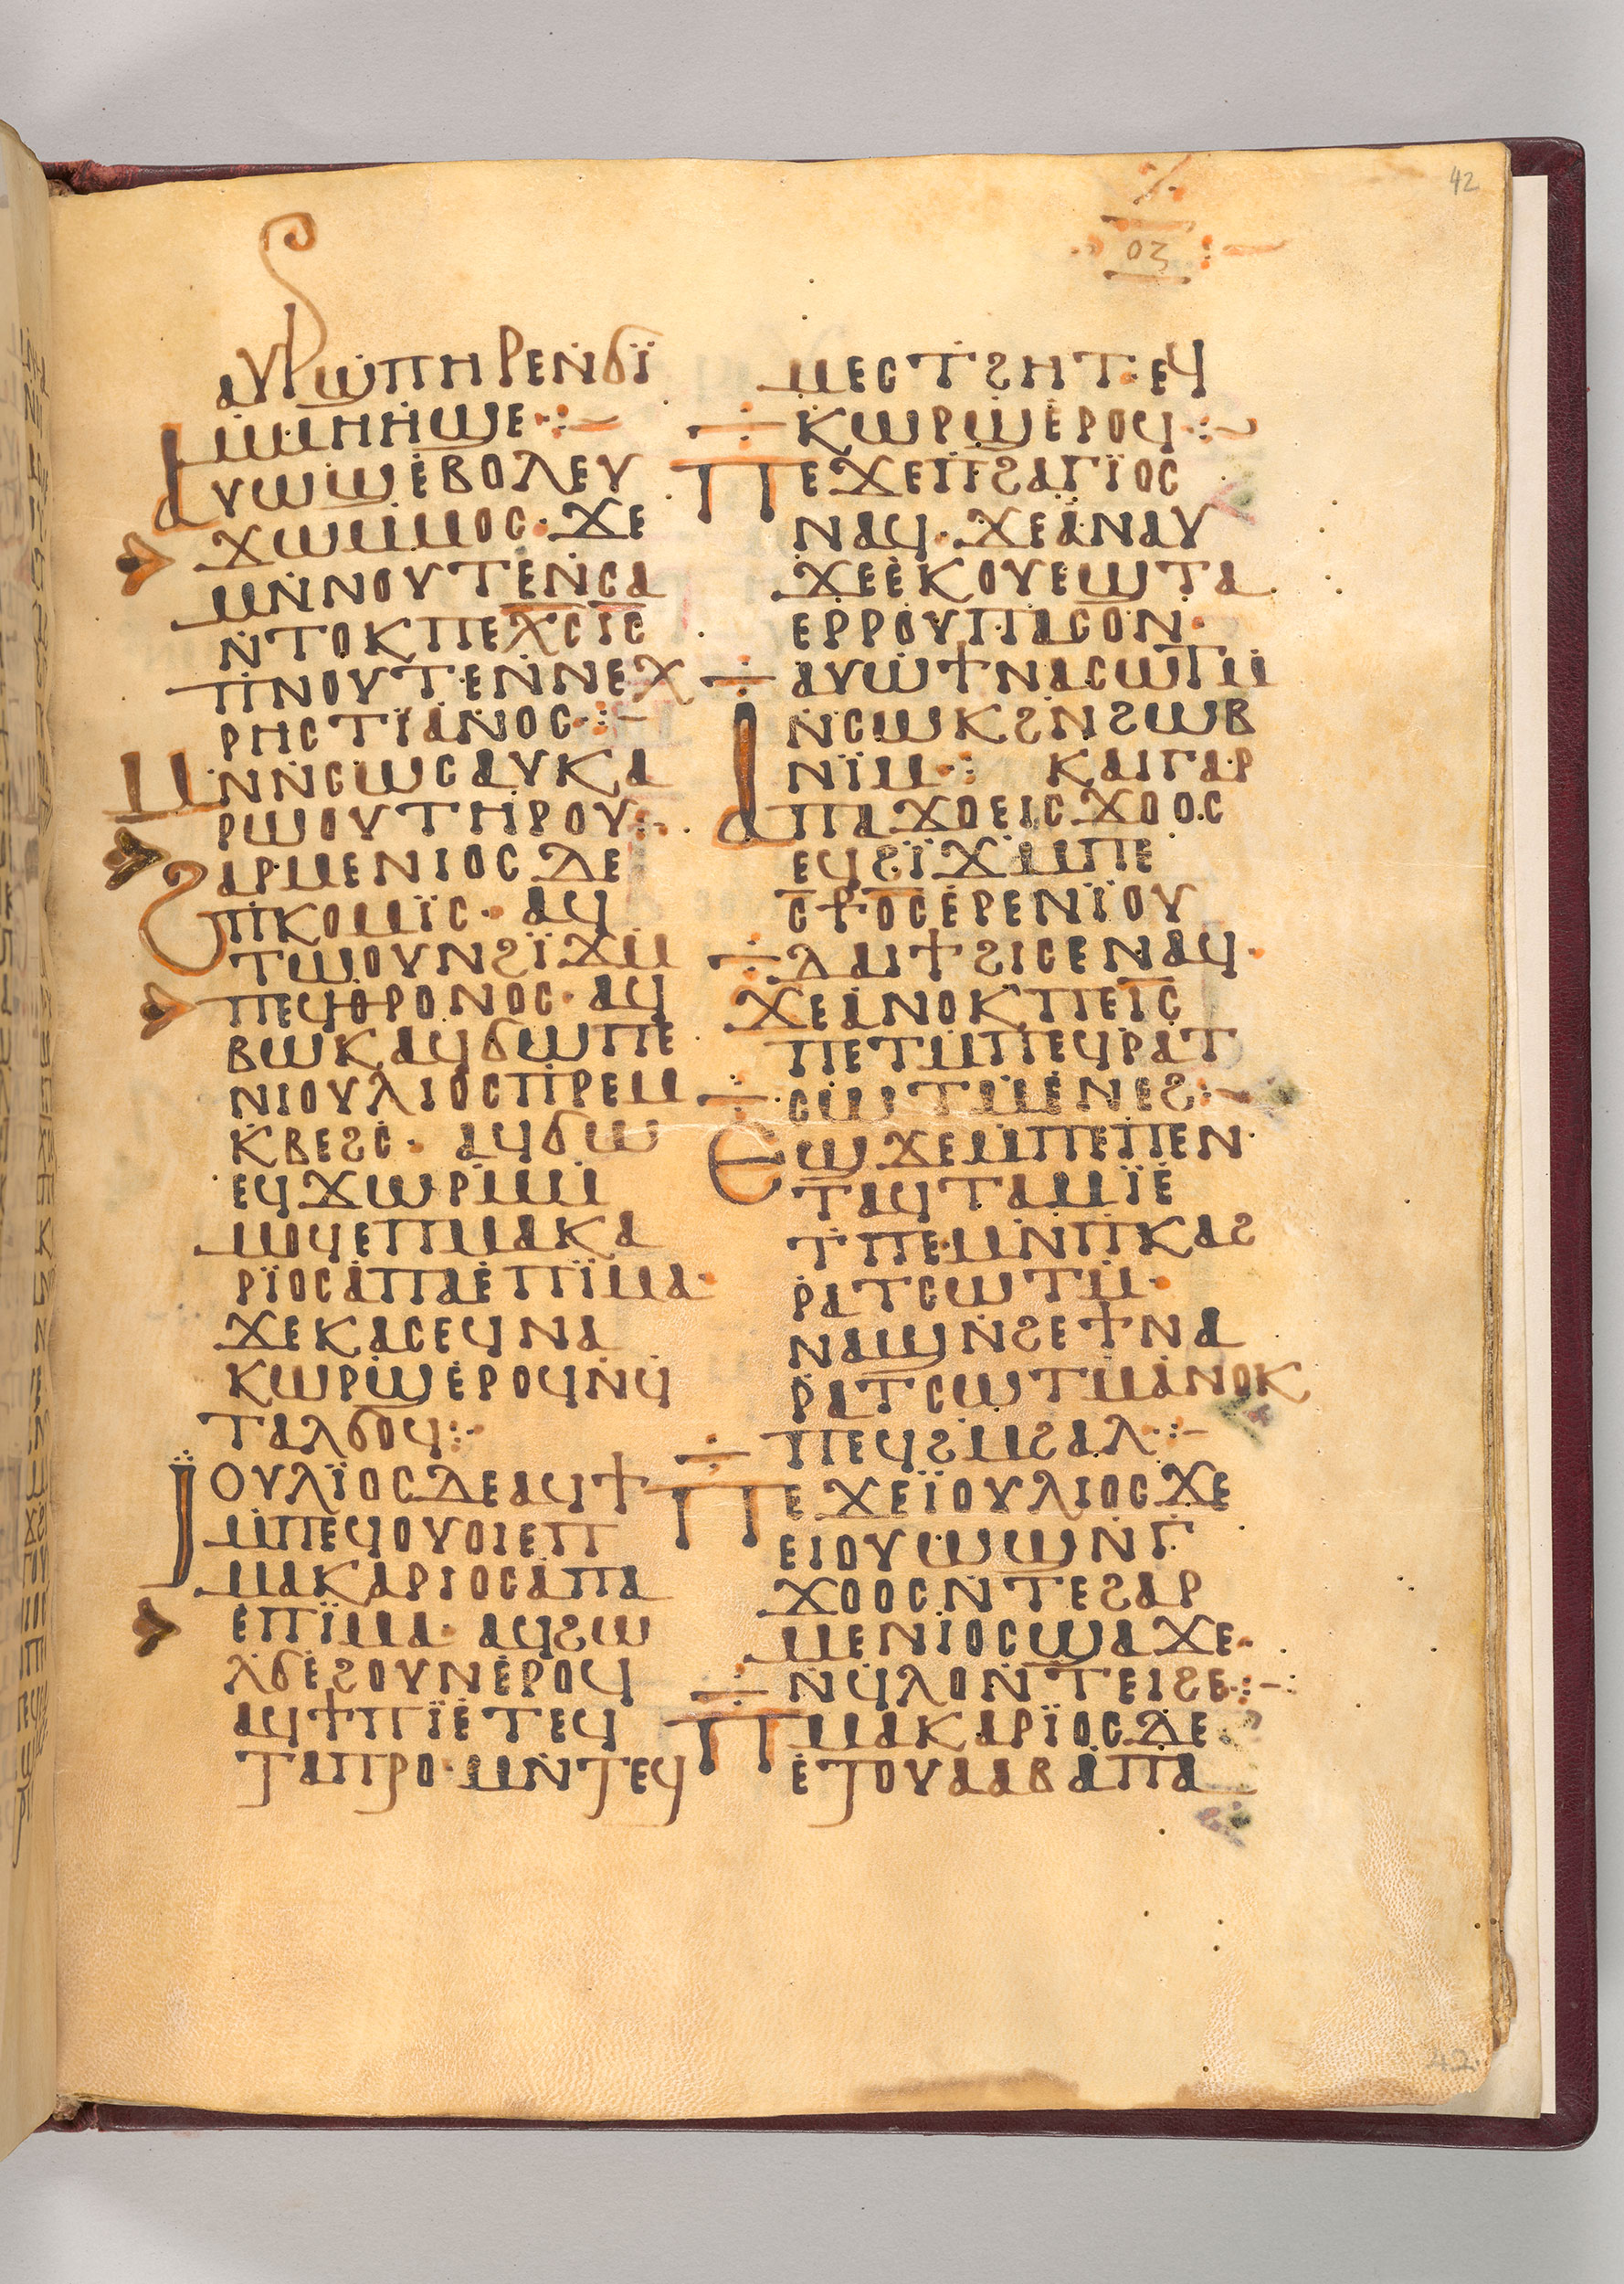 42
ⲟⲍ
ⲁⲩⲣϣⲡⲏⲣⲉⲛϭⲓ̈
ⲙⲙⲏⲏϣⲉ·:—
ⲁⲩⲱϣⲉⲃⲟⲗⲉⲩ
ϫⲱⲙⲙⲟⲥ· ϫⲉ
ⲙⲛⲛⲟⲩⲧⲉⲛⲥⲁ
ⲛⲧⲟⲕⲡⲉⲭ̅ⲥ̅ⲓ̅ⲥ̅
ⲡⲛⲟⲩⲧⲉⲛⲛⲉⲭ
ⲣⲏⲥⲧⲓ̈ⲁⲛⲟⲥ·:—
ⲙⲛⲛⲥⲱⲥⲁⲩⲕⲁ
ⲣⲱⲟⲩⲧⲏⲣⲟⲩ:·
ϩⲁⲣⲙⲉⲛⲓⲟⲥ ⲇⲉ
ⲡⲕⲟⲙⲓ̈ⲥ· ⲁϥ
ⲧⲱⲟⲩⲛϩⲓ̈ϫⲙ
ⲡⲉϥⲑⲣⲟⲛⲟⲥ· ⲁϥ
ⲃⲱⲕⲁϥϭⲱⲡⲉ
ⲛⲓⲟⲩⲗⲓⲟⲥⲡⲣⲉⲙ
ⲕⲃⲉϩⲥ· ⲁϥϭⲱ
ⲉϥϫⲱⲣⲙⲙ
ⲙⲟϥⲉⲡⲙⲁⲕⲁ
ⲣⲓ̈ⲟⲥⲁⲡⲁⲉⲡⲓ̈ⲙⲁ·
ϫⲉⲕⲁⲥⲉϥⲛⲁ
ⲕⲱⲣϣⲉⲣⲟϥⲛϥ
ⲧⲁⲗϭⲟϥ:·
ⲓ̈ⲟⲩⲗⲓ̈ⲟⲥⲇⲉⲁϥϯ
ⲙⲡⲉϥⲟⲩⲟⲓⲉⲡ
ⲙⲁⲕⲁⲣⲓⲟⲥⲁⲡⲁ
ⲉⲡⲓ̈ⲙⲁ· ⲁϥϩⲱ
ⲗϭⲉϩⲟⲩⲛⲉⲣⲟϥ
ⲁϥϯⲡⲓ̈ⲉⲧⲉϥ
ⲧⲁⲡⲣⲟ·ⲙⲛⲧⲉϥ
ⲙⲉⲥⲧϩⲏⲧ·ⲉϥ
ⲕⲱⲣϣⲉⲣⲟϥ·:—
ⲡⲉϫⲉⲡϩⲁⲅⲓ̈ⲟⲥ
ⲛⲁϥ·ϫⲉⲁⲛⲁⲩ
ϫⲉⲉⲕⲟⲩⲉϣⲧⲁ
ⲉⲣⲣⲟⲩⲡⲁⲥⲟⲛ·
ⲁⲩⲱϯⲛⲁⲥⲱⲧⲙ
ⲛⲥⲱⲕϩⲛϩⲱⲃ
ⲛⲓ̈ⲙ·: ⲕⲁⲓⲅⲁⲣ
ⲁⲡⲁϫⲟⲉⲓⲥϫⲟⲟⲥ
ⲉϥϩⲓ̈ϫⲙⲡⲉ
ⲥ̅ⳁⲟ̅ⲥⲉⲣⲉⲛⲓ̈ⲟⲩ
ⲇⲁⲓϯϩⲓⲥⲉⲛⲁϥ·
ϫⲉⲁⲛⲟⲕⲡⲉⲓ̅ⲥ̅
ⲡⲉⲧⲙⲡⲉϥⲣⲁⲧ
ⲥⲱⲧⲙⲉⲛⲉϩ:—
ⲉϣϫⲉⲙⲡⲉⲡⲉⲛ
ⲧⲁϥⲧⲁⲙⲓ̈ⲉ
ⲧⲡⲉ·ⲙⲛⲡⲕⲁϩ
ⲣⲁⲧⲥⲱⲧⲙ·
ⲛⲁϣⲛϩⲉϯⲛⲁ
ⲣⲁⲧⲥⲱⲧⲙⲁⲛⲟⲕ
ⲡⲉϥϩⲙϩⲁⲗ·:—
ⲡⲉϫⲉⲓ̈ⲟⲩⲗⲓⲟⲥϫⲉ
ⲉⲓⲟⲩⲱϣⲛⲅ
ϫⲟⲟⲥⲛⲧⲉϩⲁⲣ
ⲙⲉⲛⲓⲟⲥϣⲁϫⲉ·
ⲛϥⲗⲟⲛⲧⲉⲓϩⲉ·:—
ⲡⲙⲁⲕⲁⲣⲓ̈ⲟⲥⲇⲉ
ⲉⲧⲟⲩⲁⲁⲃⲁⲡⲁ
42